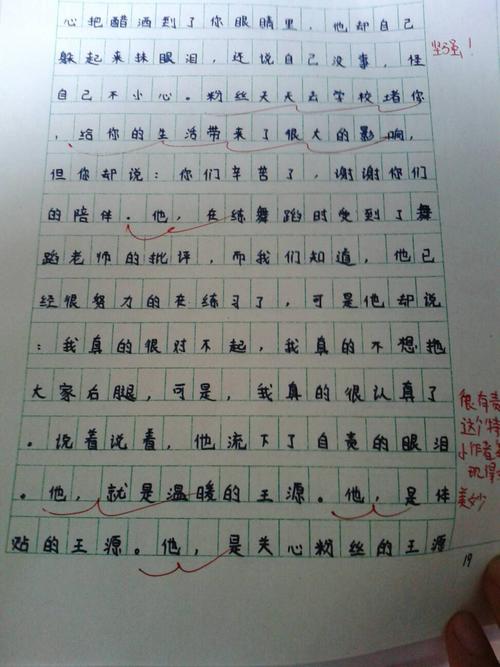 心把醋洒到了你眼睛里，他却自己
躲起来抹眼泪，还说自己没事，怪
坚强！
自己不小心。粉丝天天去学校堵你
，给你的生活带来了很大的影响，
但你却说：你们辛苦了，谢谢你们
的陪伴。他，在练舞蹈时受到了舞
蹈老师的批评，而我们知道，他已
经很努力的在练习了，可是他却说
：我真的很对不起，我真的不想拖
大家后腿，可是，我真的很认真了
。说着说着，他流下了自责的眼泪
很有责
这个特
小作者
。他，就是温暖的王源。他，是体
美妙
贴的王源。他，是关心粉丝的王源
19